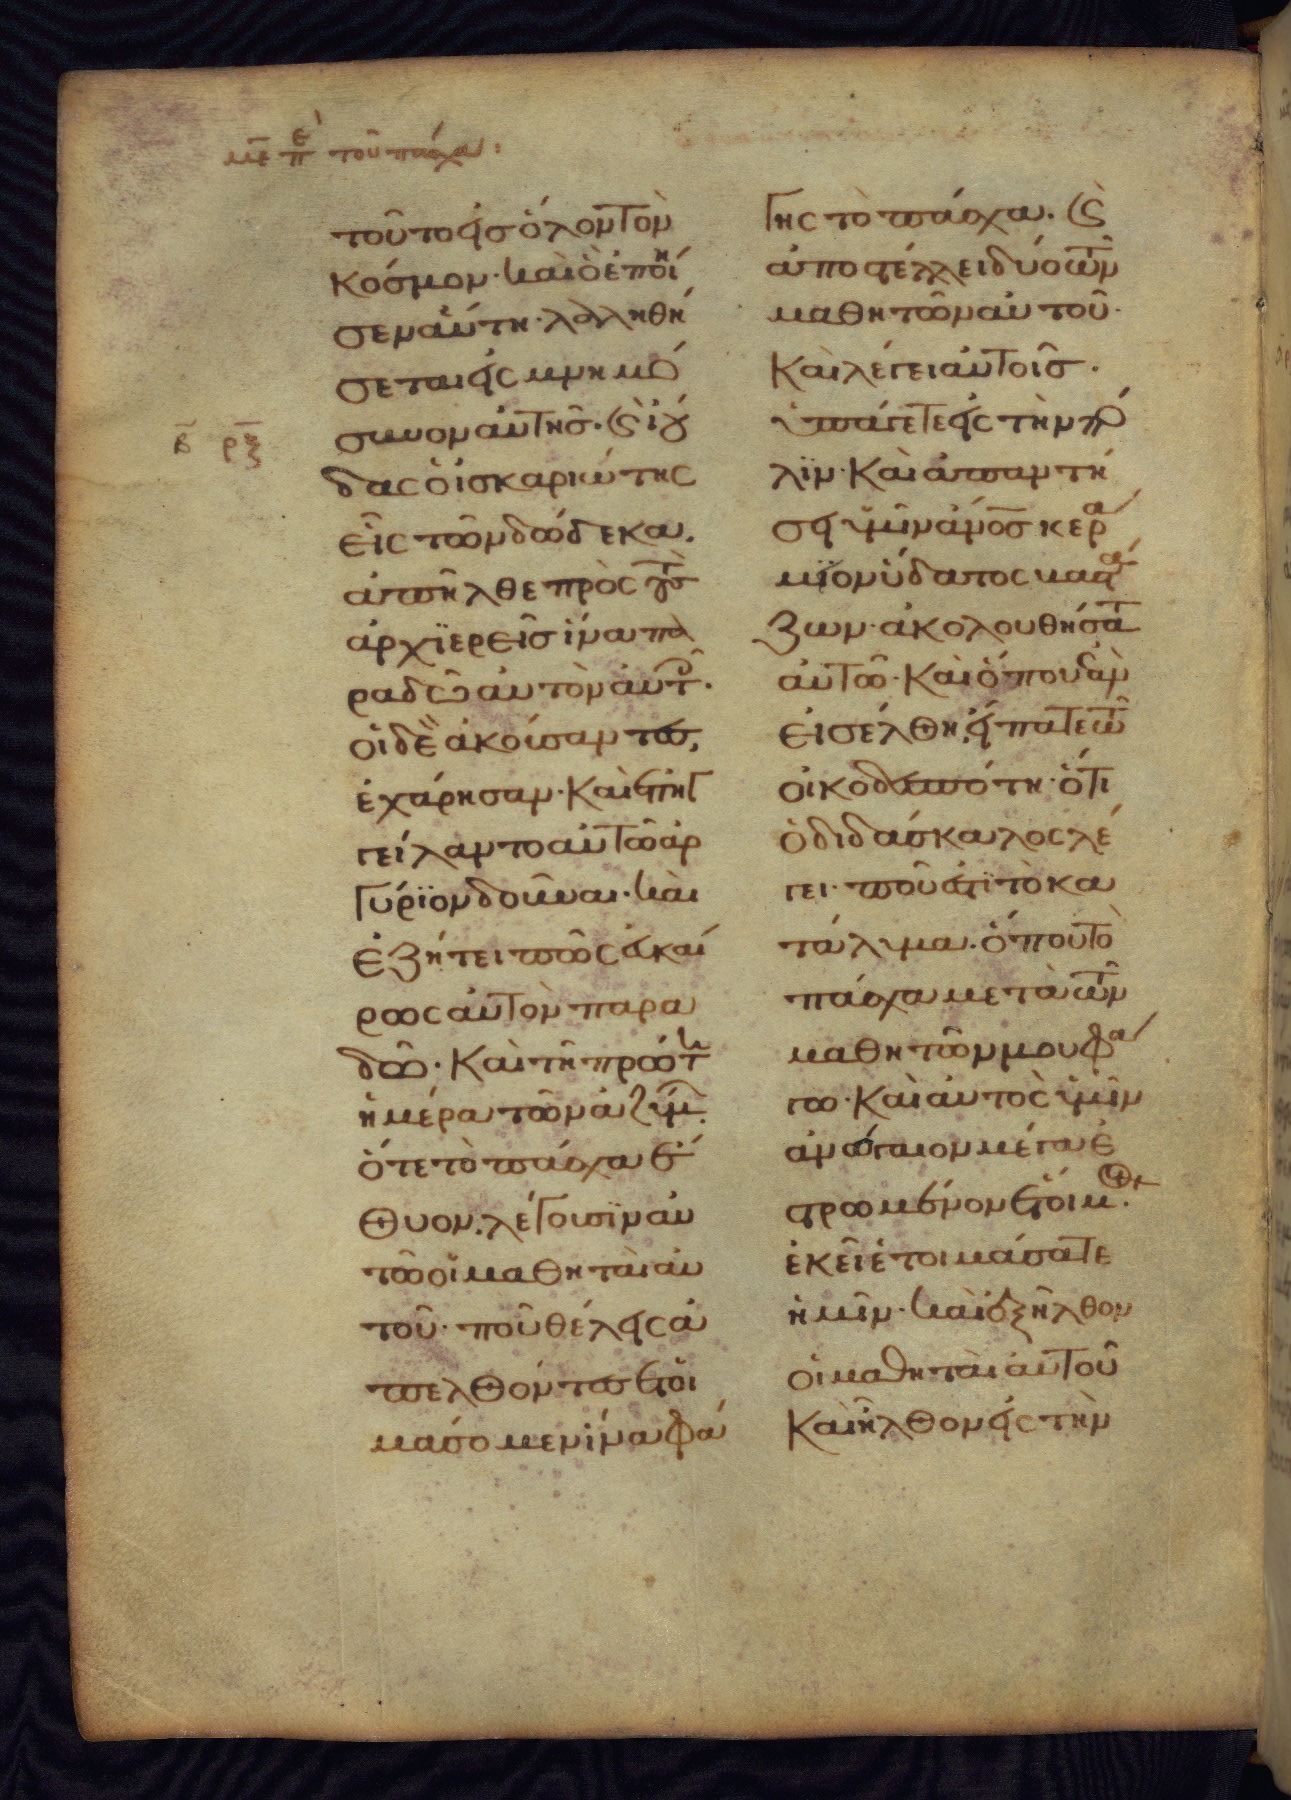 με ε π του πάσχα:
τοῦτο εἰς ὅλον τὸν
κόσμον· καὶ ὃ ἐποίη
σεν αὕτη· λαληθή
σεται εἰς μνημό
συνον αὐτῆς. ς ἰού
β ρξ
δας ὁ ἰσκαριώτης
εἷς τῶν δώδεκα.
ἀπῆλθε πρὸς τοὺς
ἀρχϊερεῖς ἵνα πα
ραδῶ αὐτὸν αὐτοῖς.
οἱ δὲ ἀκούσαντες,
ἐχάρησαν· καὶ ἐπηγ
γείλαντο αὐτῶ ἀρ
γύρϊον δοῦναι· καὶ
ἐζήτει πῶς εὐκαί
ρως αὐτὸν παρα
δῶ· καὶ τῆ πρώτη
ἡμέρα τῶν ἀζύμων.
ὅτε τὸ πάσχα ἔ
θυον, λέγουσϊν αὐ
τῶ οἱ μαθηταὶ αὐ
τοῦ· ποῦ θέλεις ἀ
πελθόντες ἑτοι
μάσομεν ἵνα φά
γης τὸ πάσχα. ς
ἀποστέλλει δύο τῶν
μαθητῶν αὐτοῦ·
καὶ λέγει αὐτοῖς·
ὑπάγετε εἰς τὴν πό
λϊν· καὶ ἀπαντή
σει ὑμῖν ἄνος κερά
μϊον ὕδατος βαστά
ζων· ἀκολουθήσατε
αὐτῶ· καὶ ὅπου ἐὰν
εἰσέλθη, εἴπατε τῶ
οἰκοδεσπότη· ὅτι
ὁ διδάσκαλος λέ
γει· ποῦ ἐστϊ τὸ κα
τάλυμα· ὅπου τὸ
πάσχα μετὰ τῶν
μαθητῶν μου φά
γω· καὶ αὐτὸς ὑμῖν
ἀνώγαιον μέγα ἐ
στρωμένον ἕτοιμον·
ἐκεῖ ἑτοιμάσατε
ἡμῖν· καὶ ἐξῆλθον
οἱ μαθηταὶ αὐτοῦ
καὶ ἦλθον εἰς τὴν